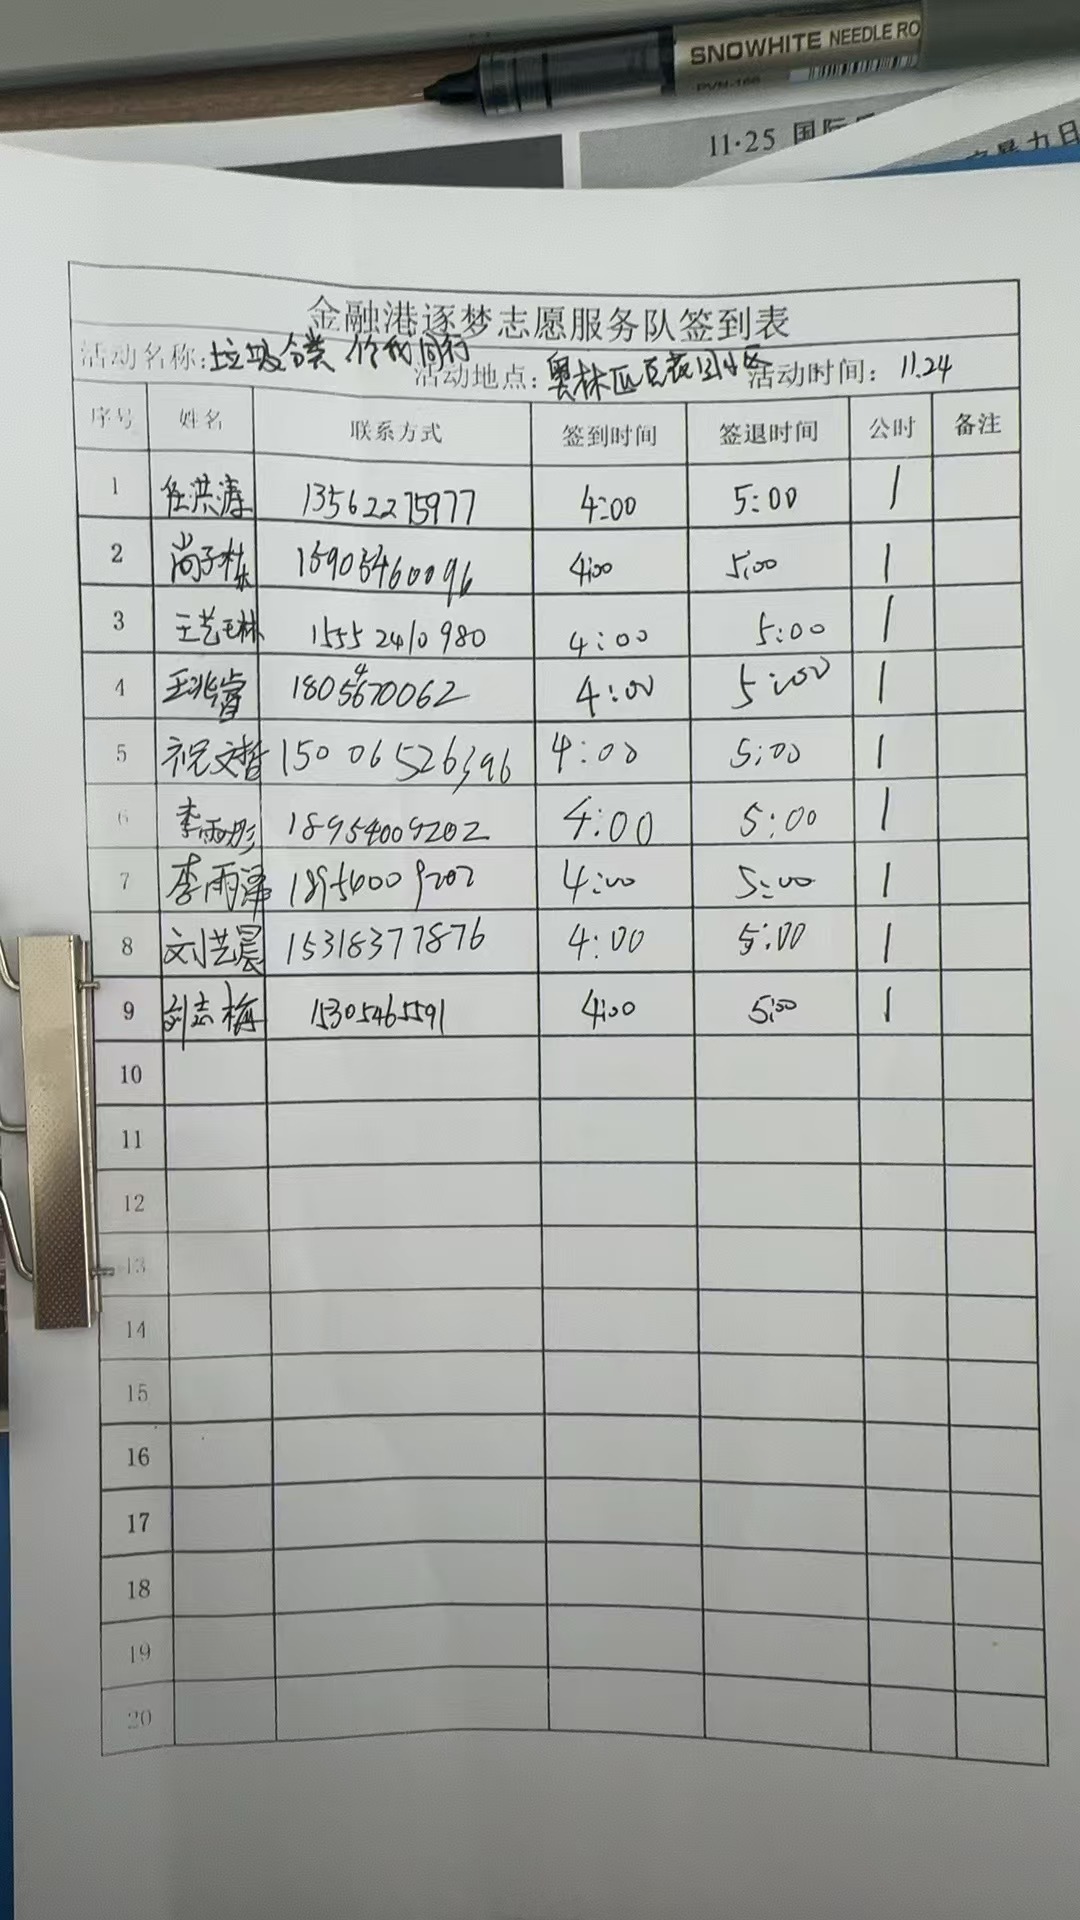 SNOWHITE NEEDLE RO
PVN-166
11·25 国际
暴力日
金融港逐梦志愿服务队签到表
活动名称:垃圾分类 你我同行 活动地点:奥林匹克花园小区 活动时间:11.24
序号 姓名 联系方式 签到时间 签退时间 公时 备注
1 任洪涛 13562275977 4:00 5:00 1
2 尚子栋 15903460096 4:00 5:00 1
3 王艺琳 15552410980 4:00 5:00 1
4 王兆睿 18054670062 4:00 5:00 1
5 祝文哲 15006526396 4:00 5:00 1
6 李雨彤 18954009202 4:00 5:00 1
7 李雨泽 18954009202 4:00 5:00 1
8 刘艺晨 15318377876 4:00 5:00 1
9 刘志梅 15305465591 4:00 5:00 1
10
11
12
13
14
15
16
17
18
19
20